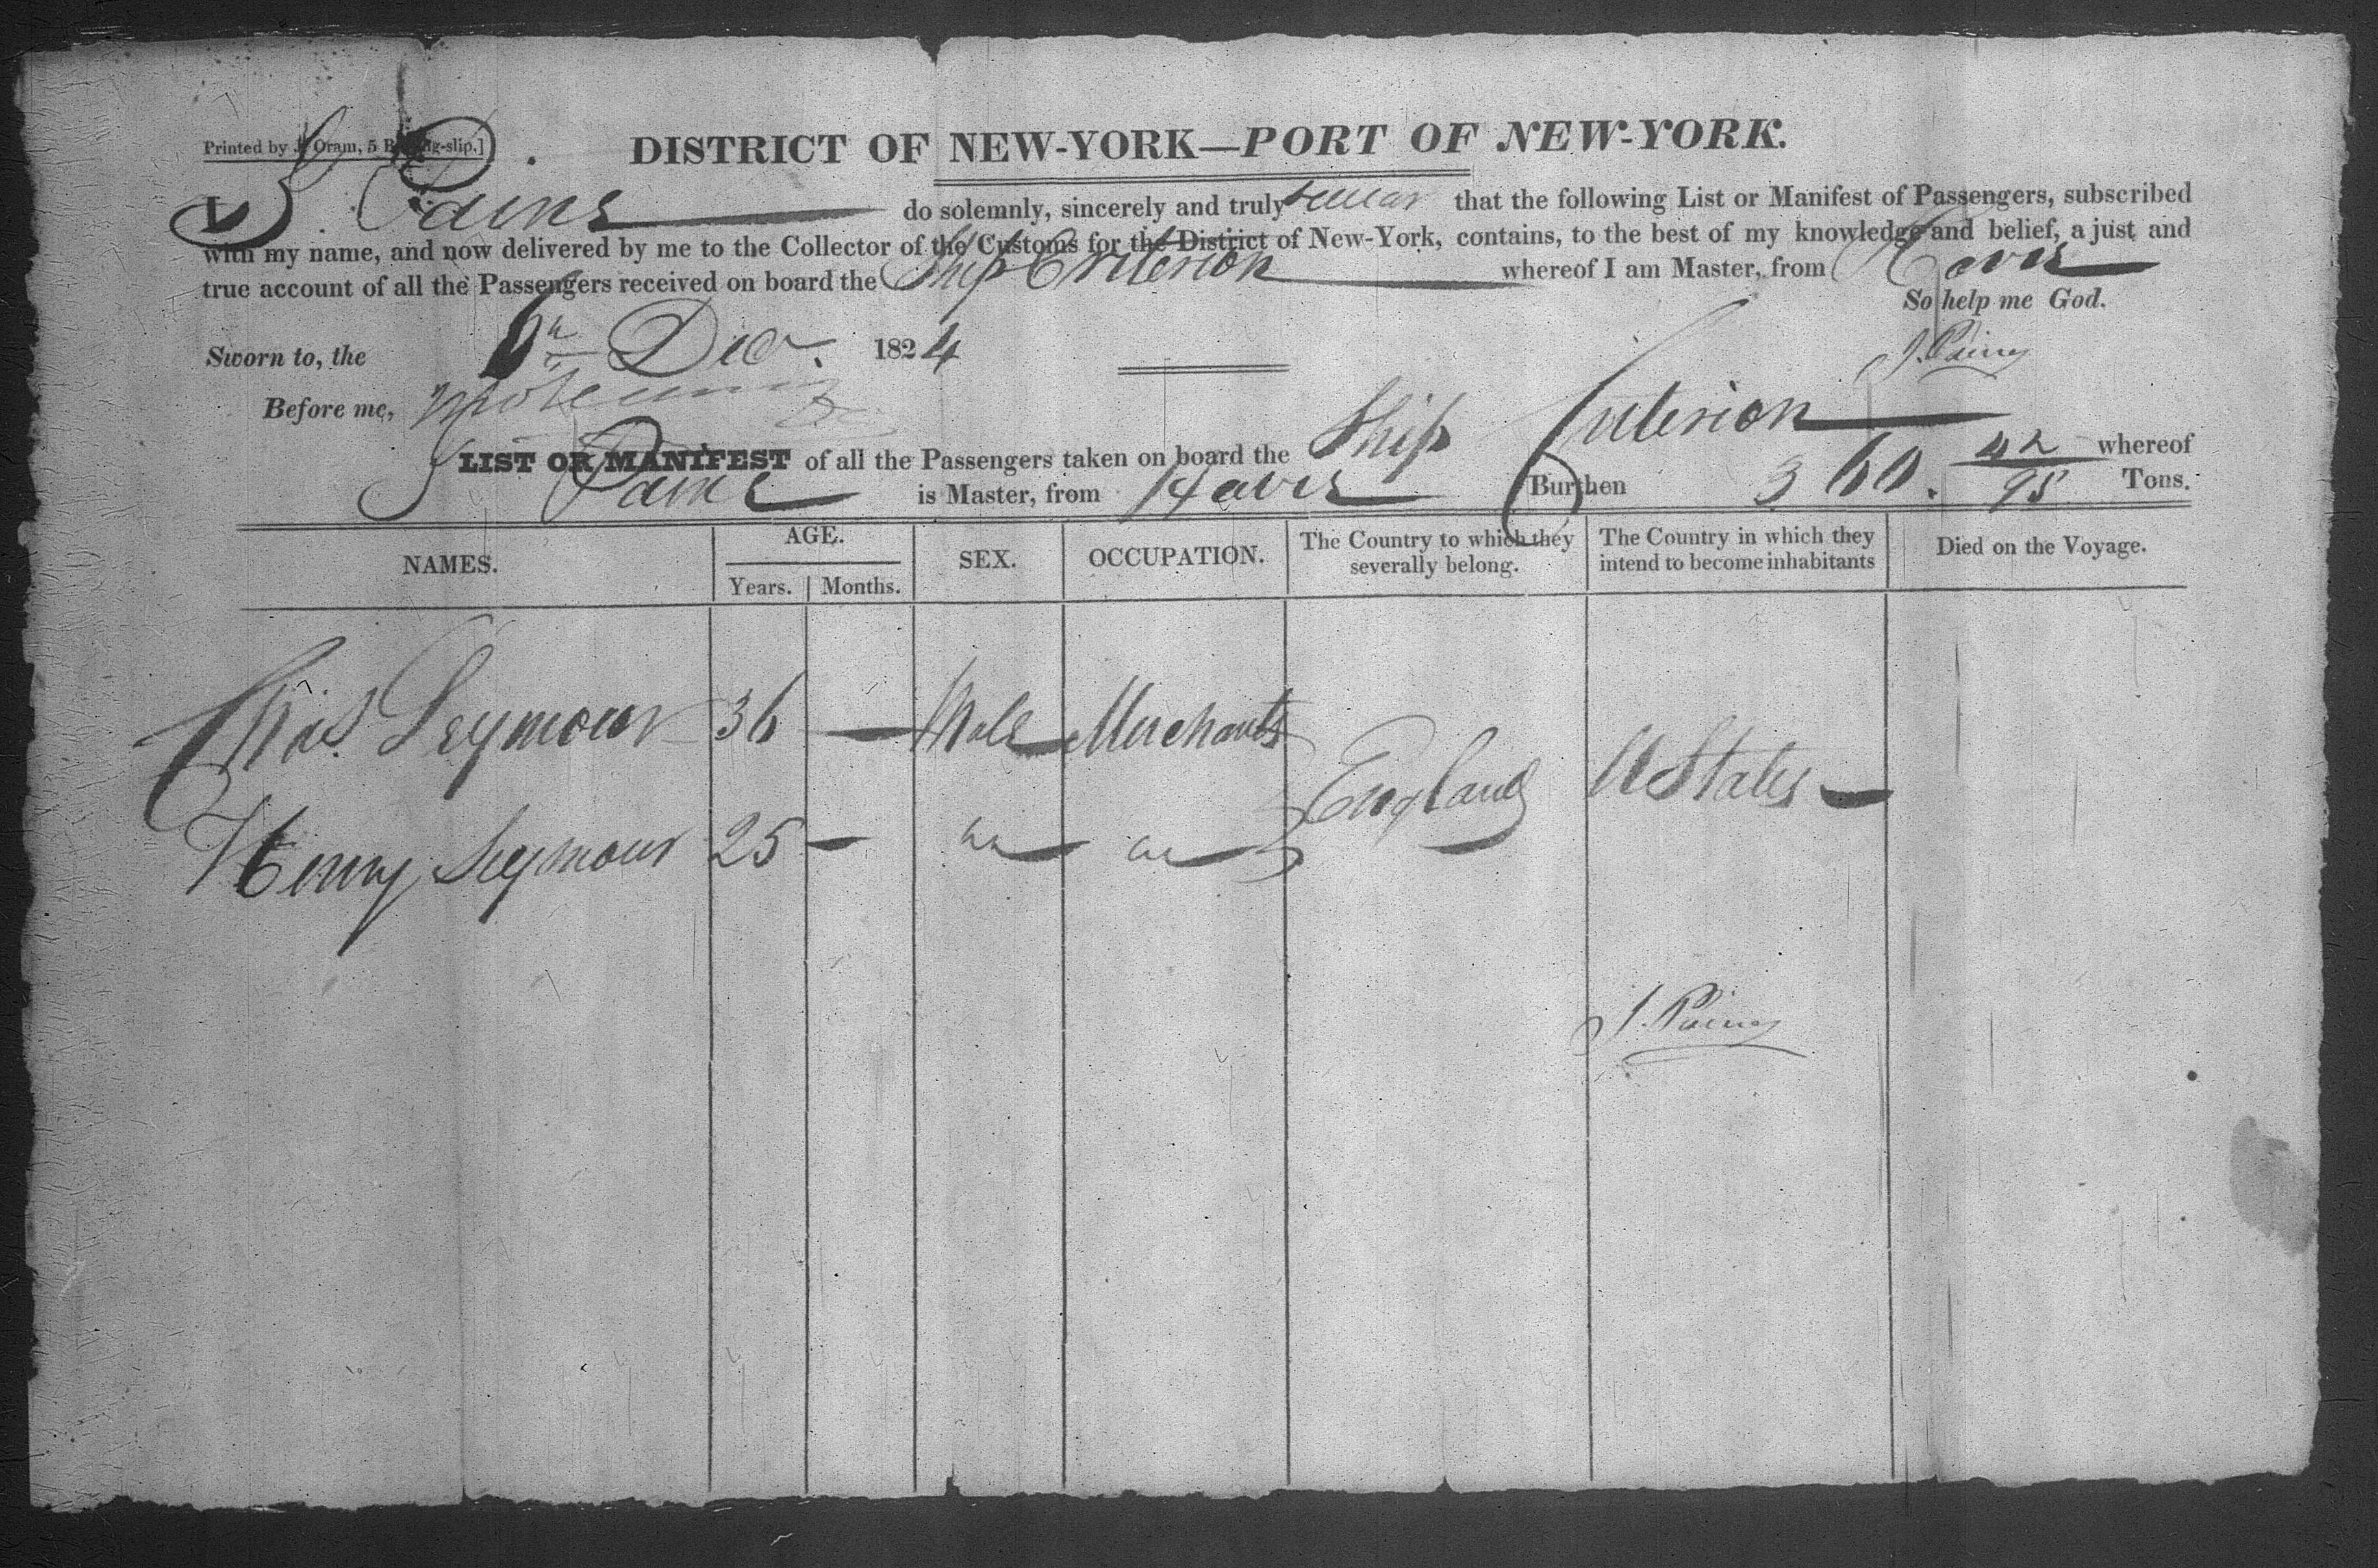 Printed by J. Oram, 5 B
DISTRICT OF NEW-YORK—PORT OF NEW-YORK.
I J. Paine do solemnly, sincerely and truly swear that the following List or Manifest of Passengers, subscribed
with my name, and now delivered by me to the Collector of the Customs for the District of New-York, contains, to the best of my knowledge and belief, a just and
true account of all the Passengers received on board the Ship Criterion whereof I am Master, from Havre
So help me God.
Sworn to, the 6th Decr. 1824
J. Paine
Before me,
LIST OR MANIFEST of all the Passengers taken on board the Ship Criterion whereof
J Paine is Master, from Havre Burthen 360. 42/95 Tons.
NAMES. AGE. SEX. OCCUPATION. The Country to which they severally belong. The Country in which they intend to become inhabitants Died on the Voyage.
Years. Months.
Chas. Seymour 36 — Male Merchants
England U States
Henry Seymour 25 —
J. Paine